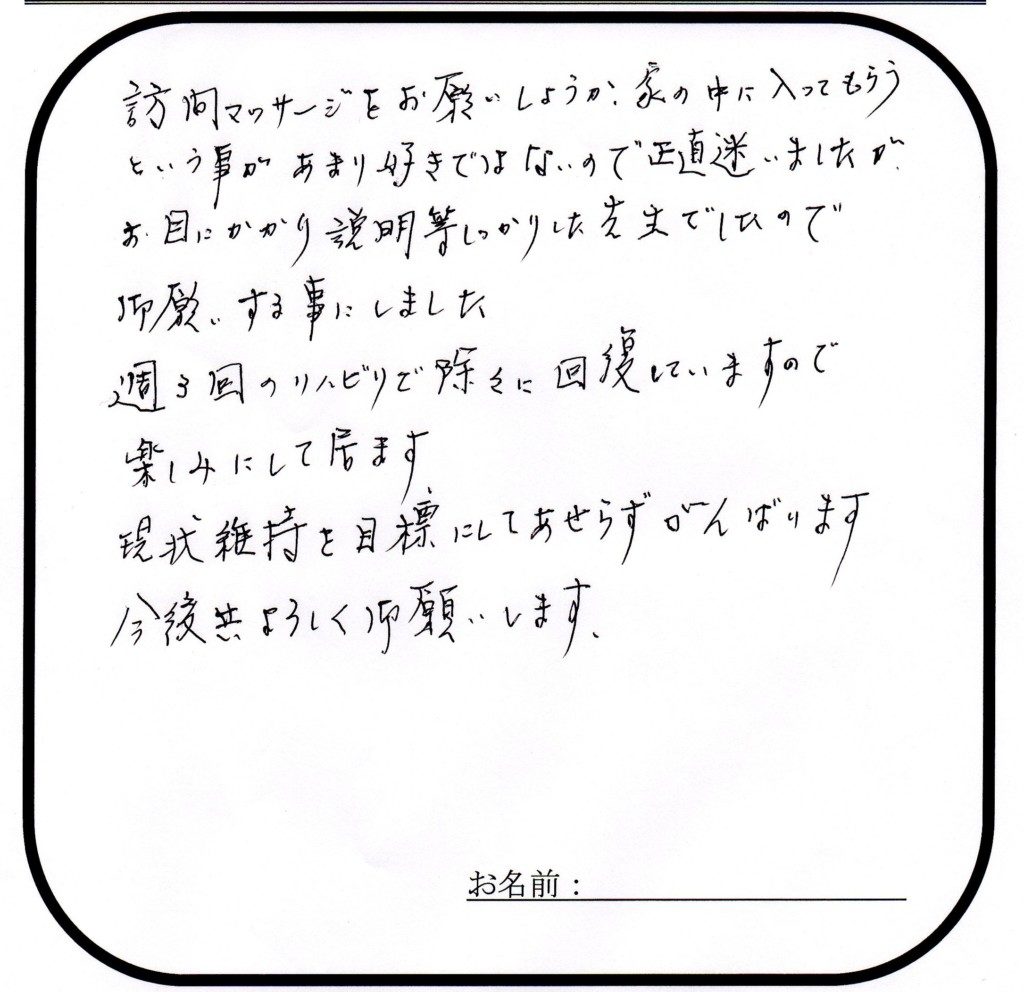 訪問マッサージをお願いしようか、家の中に入ってもらう
という事があまり好きではないので正直迷いましたが、
お目にかかり説明等しっかりした先生でしたので
御願いする事にしました
週3回のリハビリで除々に回復していますので
楽しみにして居ます
現状維持を目標にしてあせらずがんばります
今後共よろしく御願いします、
お名前：